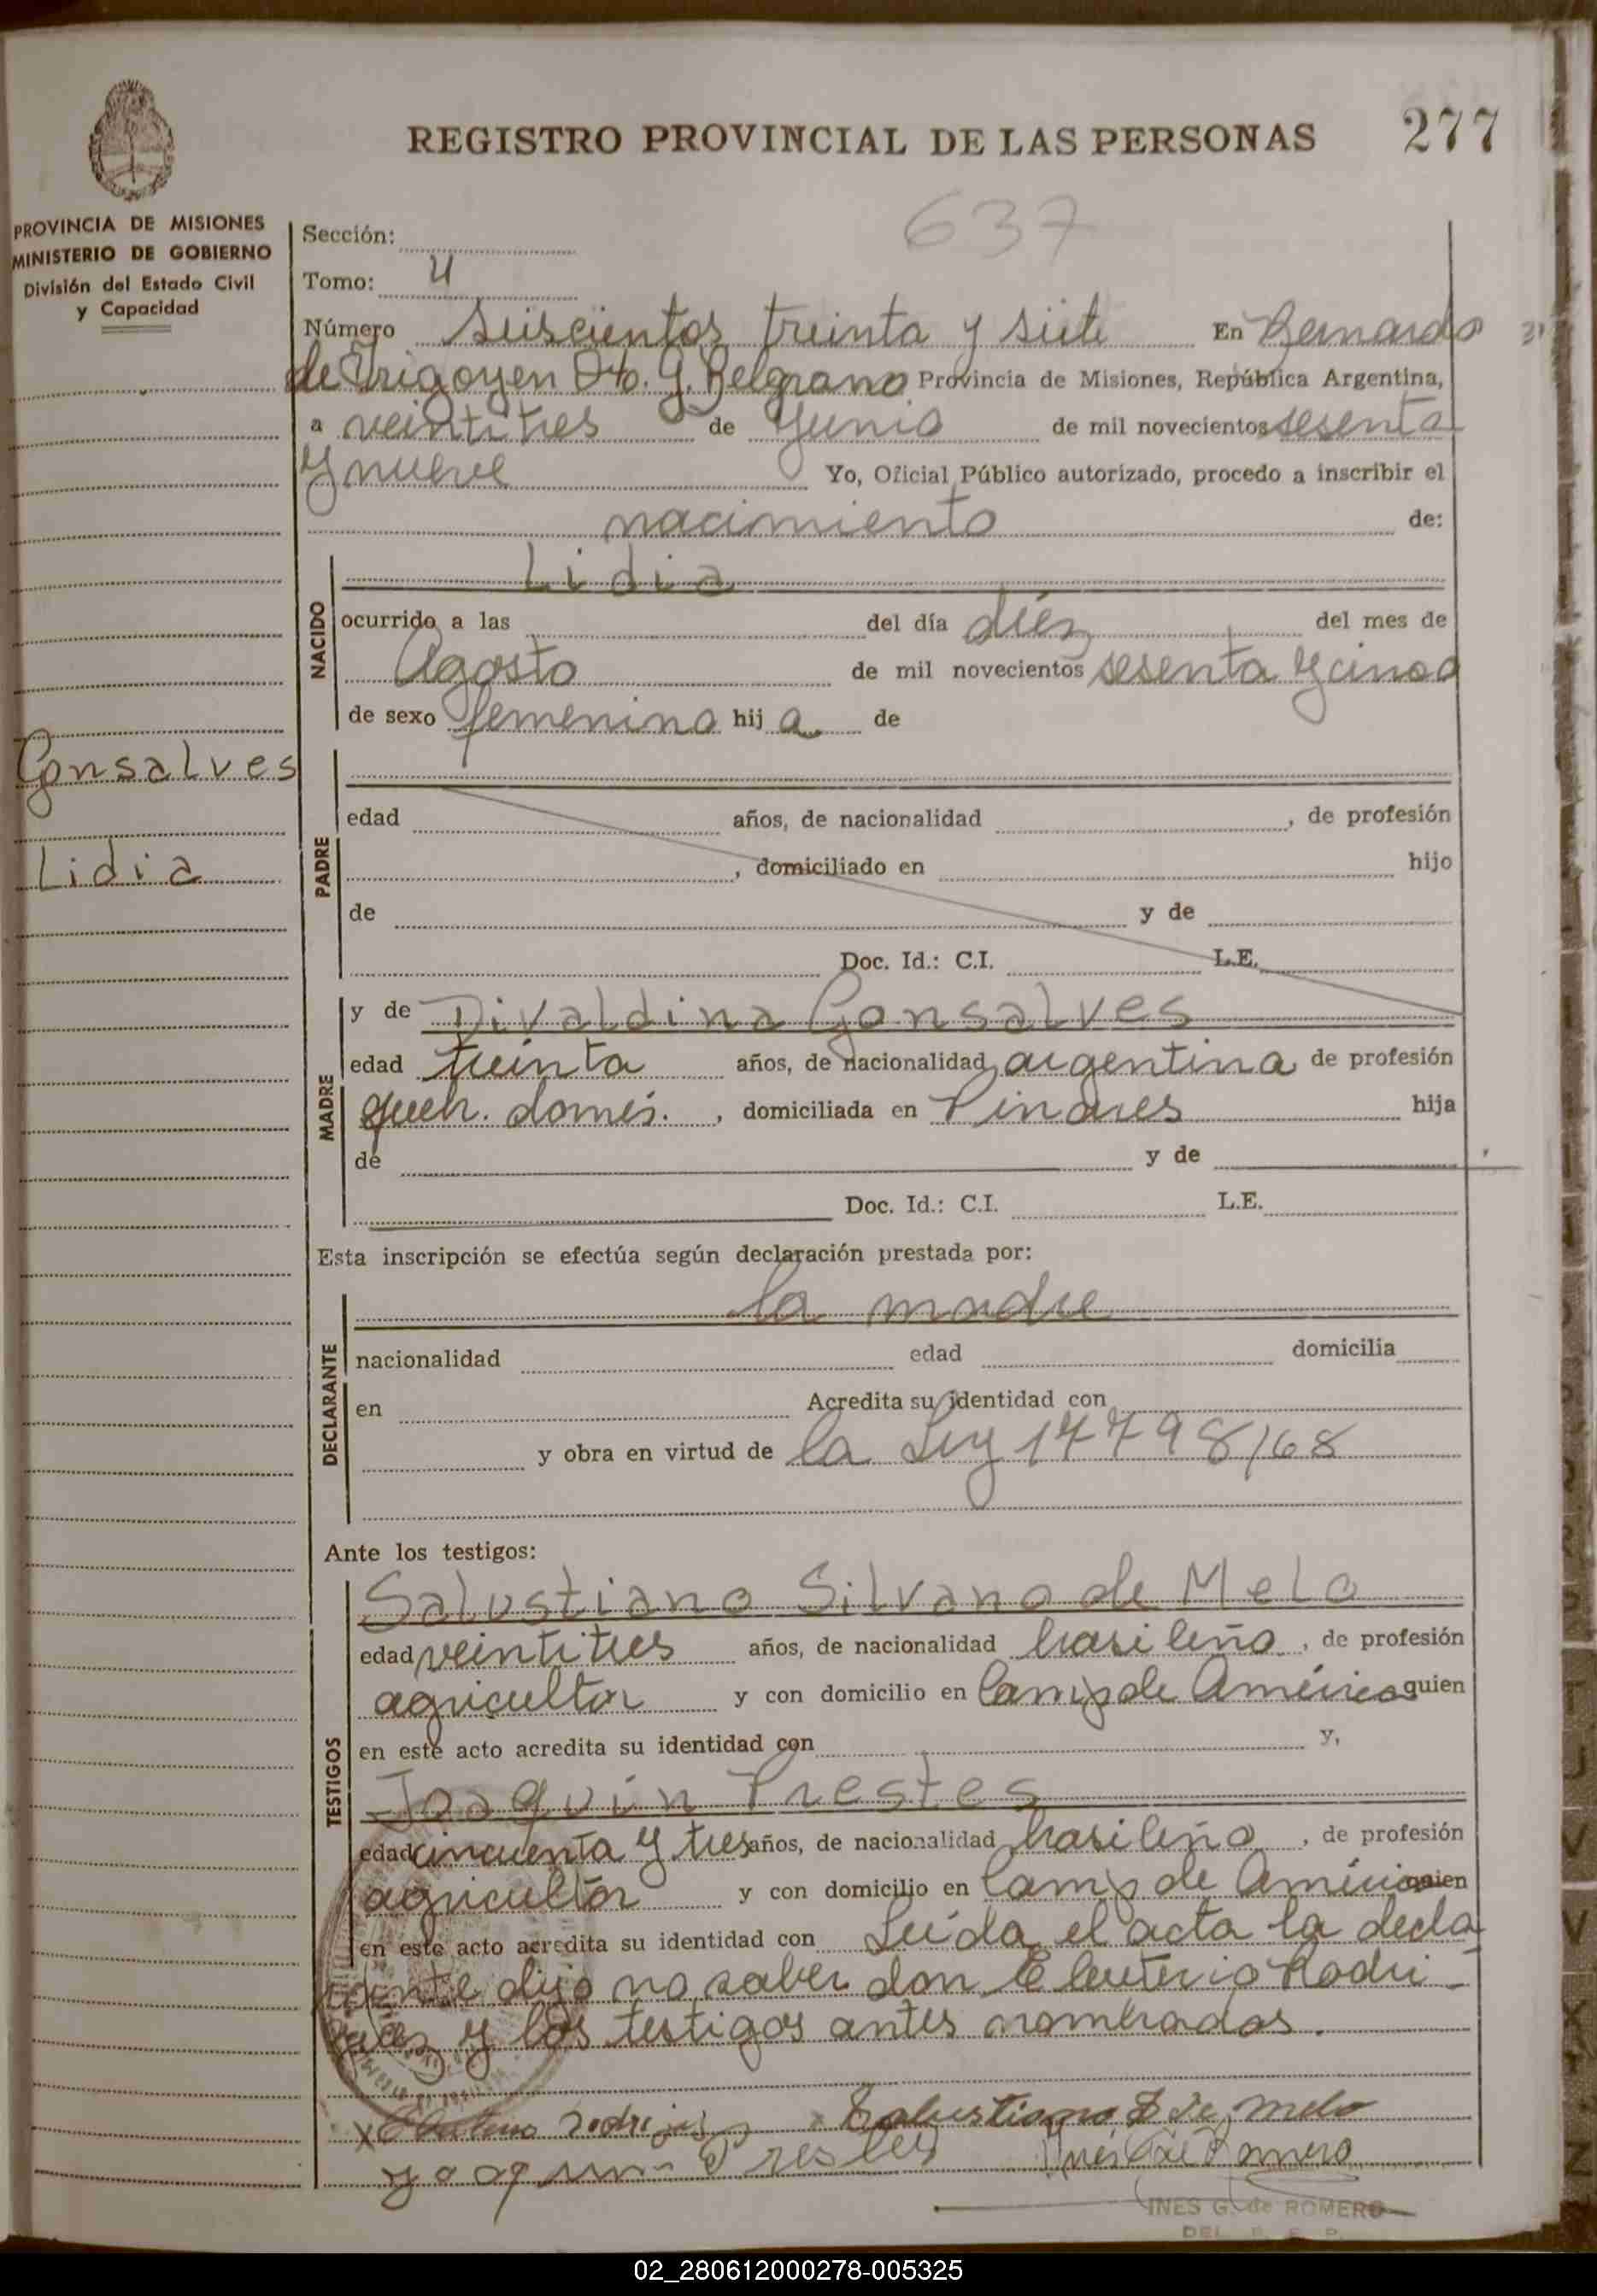 REGISTRO PROVINCIAL DE LAS PERSONAS 277
637
PROVINCIA DE MISIONES
MINISTERIO DE GOBIERNO
División del Estado Civil
y Capacidad
Gonsalves
Lidia
Sección:
Tomo: 4
Número Seiscientos treinta y siete En Bernardo
de Irigoyen Dto. G. Belgrano Provincia de Misiones, República Argentina,
a veintitres de Junio de mil novecientos sesenta
y nueve Yo, Oficial Público autorizado, procedo a inscribir el
nacimiento de:
NACIDO
Lidia
ocurrido a las del día diez del mes de
Agosto de mil novecientos sesenta y cinco
de sexo femenino hij a de
PADRE
edad años, de nacionalidad , de profesión
, domiciliado en hijo
de y de
Doc. Id.: C.I. L.E.
MADRE
y de Divaldina Gonsalves
edad treinta años, de nacionalidad argentina de profesión
queh. domés. , domiciliada en Pinares hija
de y de
Doc. Id.: C.I. L.E.
Esta inscripción se efectúa según declaración prestada por:
DECLARANTE
la madre
nacionalidad edad domicilia
en Acredita su identidad con
y obra en virtud de la Ley 17798/68
Ante los testigos:
TESTIGOS
Salustiano Silvano de Melo
edad veintitres años, de nacionalidad brasileño , de profesión
agricultor y con domicilio en Camp de América quien
en este acto acredita su identidad con y,
Joaquín Prestes
edad cincuenta y tres años, de nacionalidad brasileño , de profesión
agricultor y con domicilio en Camp de América quien
en este acto acredita su identidad con Leída el acta la decla
rante dijo no saber don Eleuterio Rodri-
guez y los testigos antes nombrados.
x Salustiano S de Melo
yoaquin Prestes Inés G de Romero
INES G. de ROMERO
02_280612000278-005325